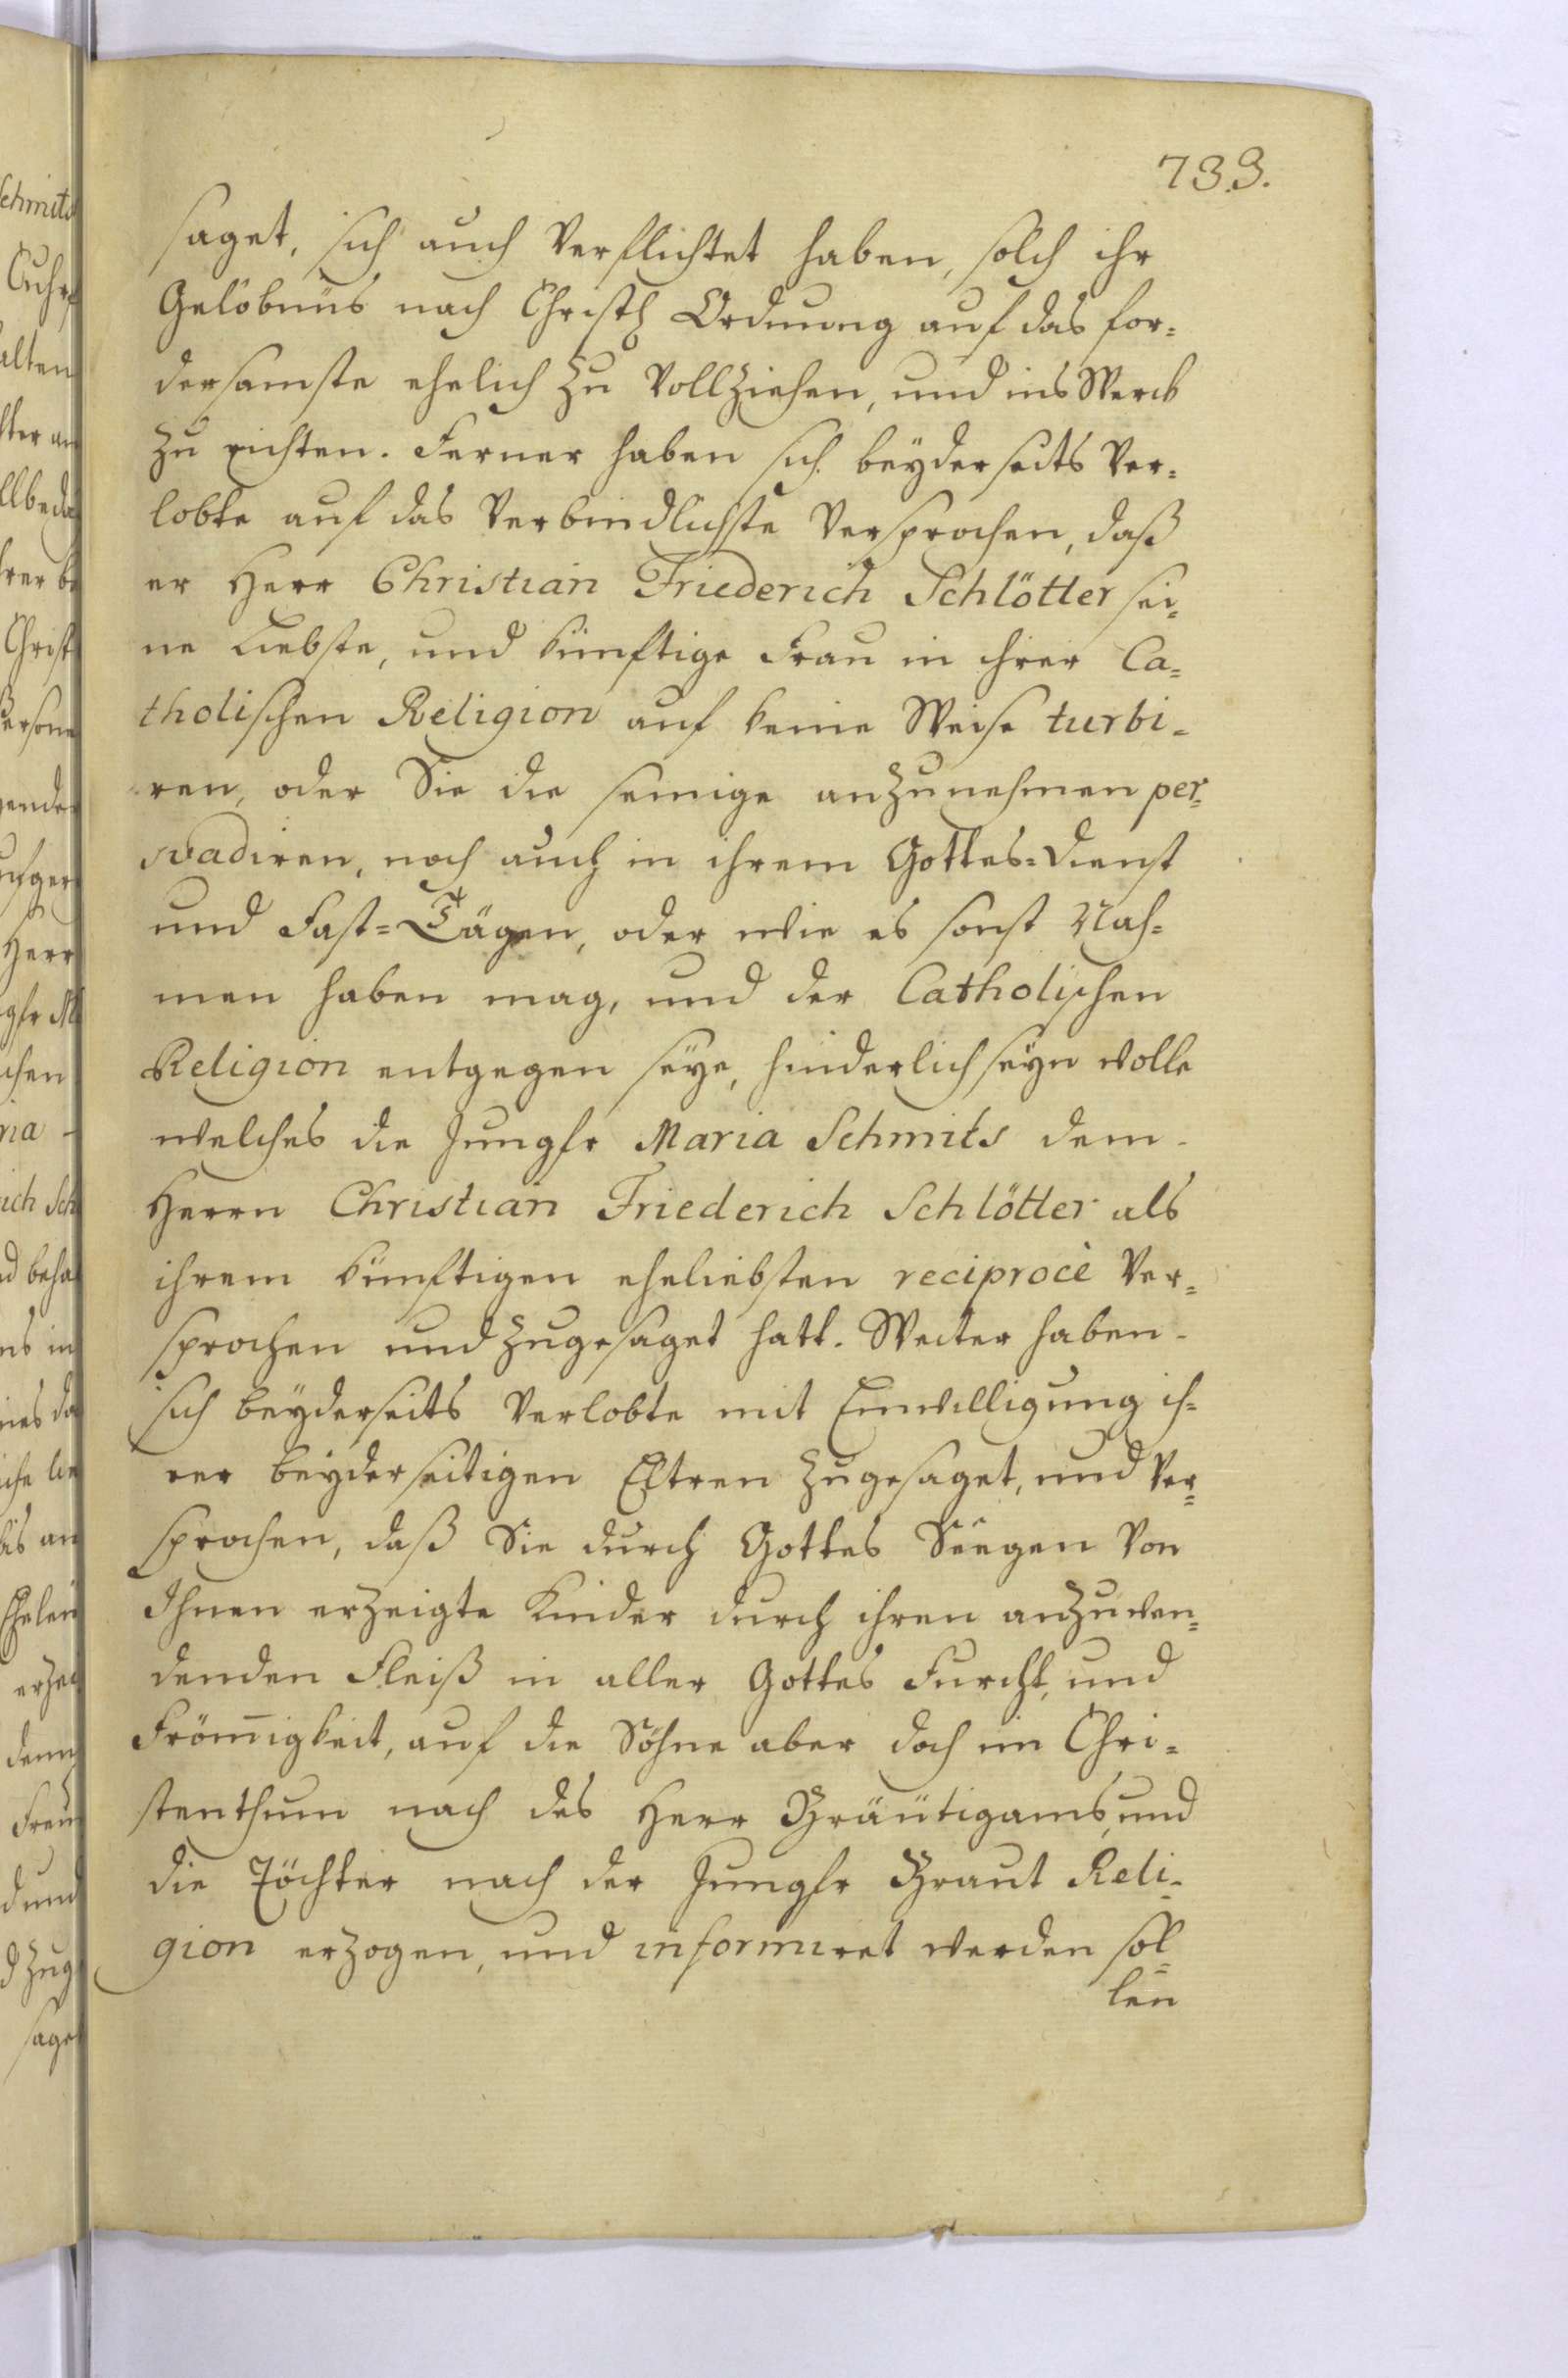 733.
saget, sich auch Verpflichtet haben, solch ihr
Gelöbnüs nach Christl Ordnung auf das for=
dersamste ehelich zu Vollziehen, und ins Werck
zu richten. Ferner haben sich beÿderseits Ver=
lobte auf das Verbindlichste Versprochen, daß
er Herr Christian Friederich Schlötter sei=
ne Liebste, und künftige Frau in ihrer Ca=
tholischen Religion auf keine Weise turbi=
ren, oder Sie die seinige anzunehmen per=
svadiren, noch auch in ihrem Gottes=Dienst
und Fast=Tägen, oder wie es sonst Nah=
men haben mag, und der Catholischen
Religion entgegen seÿe, hinderlich seÿn wolle
welches die Jungfr Maria Schmits dem
Herrn Christian Friederich Schlötter als
ihrem künftigen eheliebsten reciprocè Ver=
sprochen und zugesaget hatt. Weiter haben
sich beÿderseits Verlobte mit Einwilligung ih=
rer beÿderseitigen Eltren zugesaget, und Ver=
sprochen, daß Sie durch Gottes Seegen Von
Ihnen erzeigte Kinder durch ihren anzuwen=
denden Fleiß in aller Gottes Furcht, und
Frömigkeit, auf die Söhne aber doch im Chri=
stenthum nach des Herr Bräutigams, und
die Töchter nach der Jungfr Braut Reli=
gion erzogen, und informiret werden sol=
len